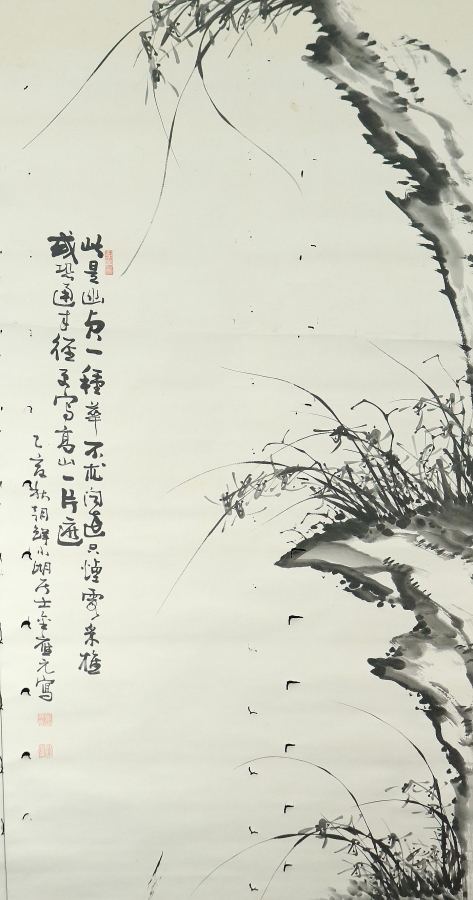 此是幽貞一種華不求聞達只烟霞采樵
或恐通来徑更寫高山一片遮
乙亥秋朝鮮小湖居士金應元寫